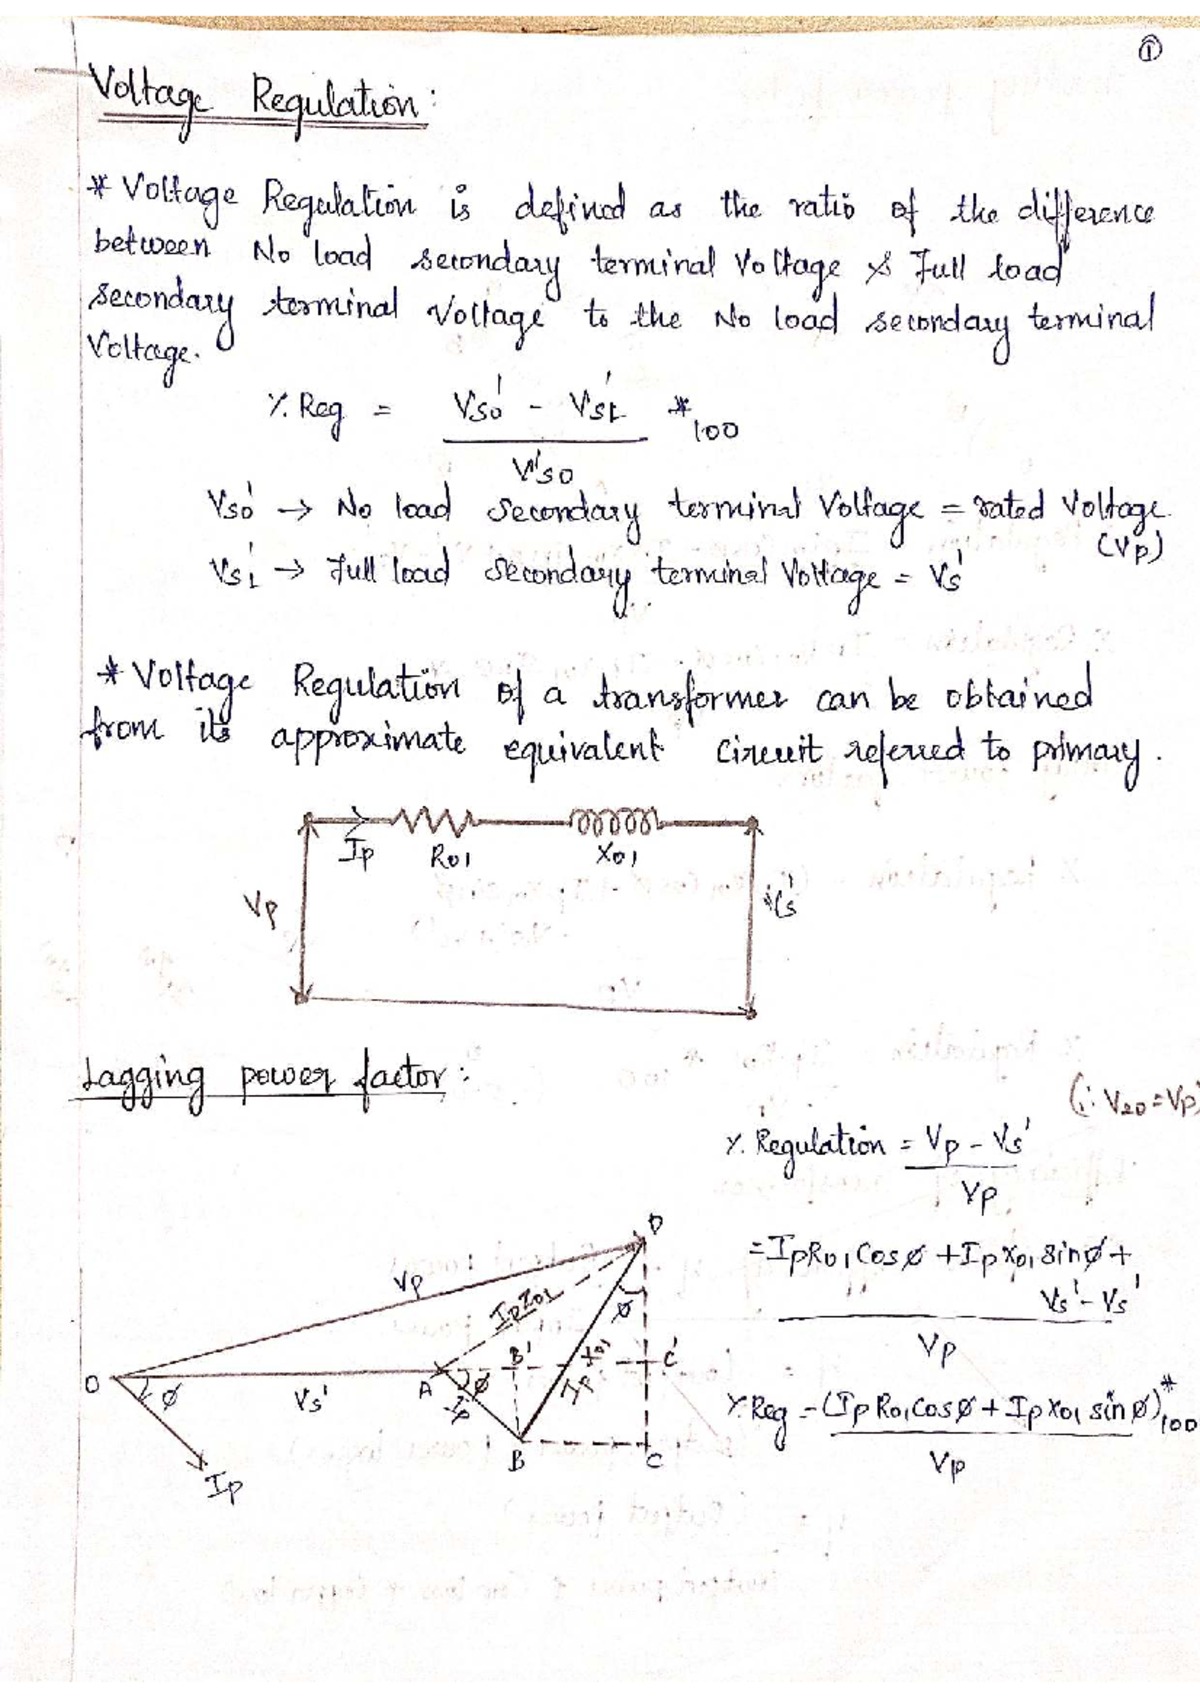 ①
Voltage Regulation:
* Voltage Regulation is defined as the ratio of the difference
between No load secondary terminal Voltage & Full load
secondary terminal Voltage to the No load secondary terminal
Voltage.
%. Reg = Vso' - VsL' * 100
V'so
Vso' → No load secondary terminal Voltage = rated Voltage.
(Vp)
VsL' → Full load secondary terminal Voltage = Vs'
* Voltage Regulation of a transformer can be obtained
from its approximate equivalent circuit referred to primary.
Ip R01 X01
Vp Vs'
Lagging power factor:
(∵ V20 = Vp)
%. Regulation = Vp - Vs'
Vp
= Ip R01 Cos ø + Ip X01 sin ø +
Vs' - Vs'
Vp
%. Reg = (Ip R01 Cos ø + Ip X01 sin ø) * 100
Vp
D
Vp
Ip Z01
ø
O ø Vs' A ø B' Ip X01 C'
Ip
B C
Ip